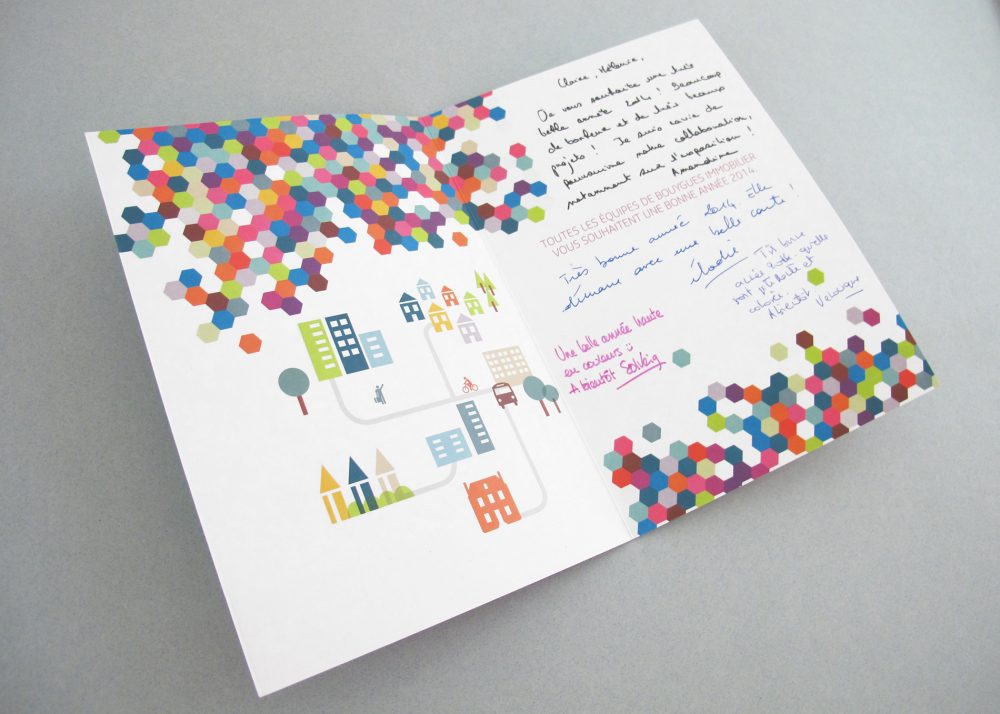 Claire, Mélanie,
On vous souhaite une très
belle année 2014 ! Beaucoup
de bonheur et de très beaux
projets ! Je suis ravie de
poursuivre notre collaboration,
notamment sur l'exposition !
Amandine
TOUTES LES ÉQUIPES DE BOUYGUES IMMOBILIER
VOUS SOUHAITENT UNE BONNE ANNÉE 2014.
Très bonne année 2014. Elle
démarre avec une belle carte !
Élodie
Très bonne
année 2014 qu'elle
soit
colorée
A bientôt
Une belle année haute
en couleurs
A bientôt Solveig